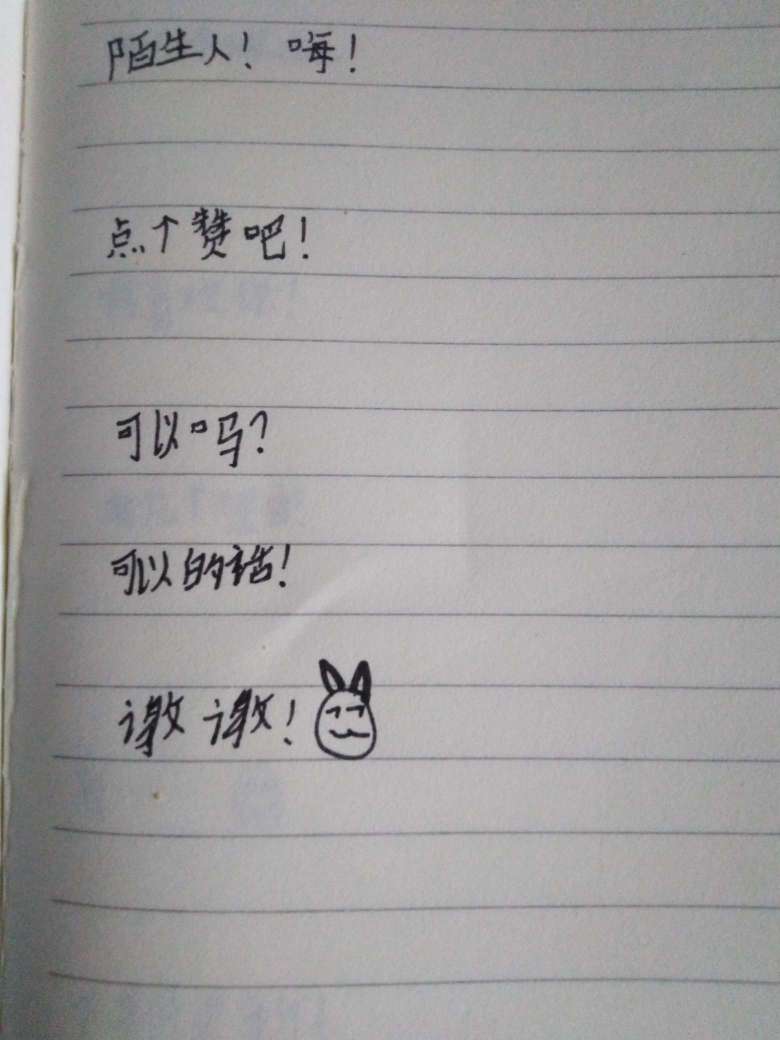 陌生人！嗨！
点个赞吧！
可以吗？
可以的话！
谢谢！